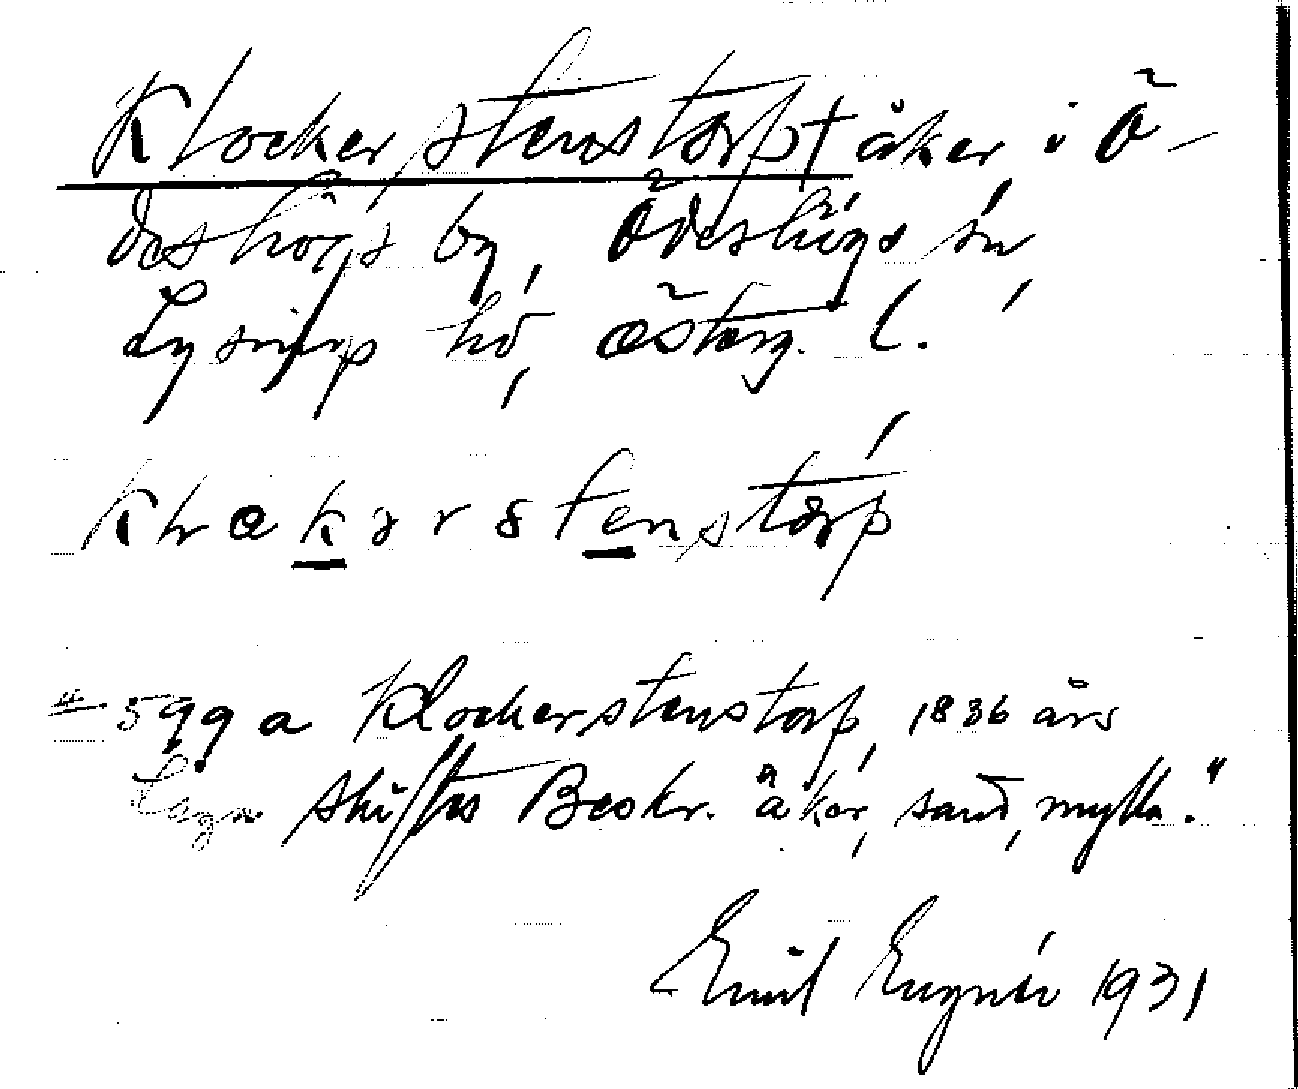 Klockerstenstorp† åker i Ö-
deshögs by, Ödeshögs sn,
Lysings hd, Österg. l.
599 a Klockerstenstorp, 1836 års
Laga skiftes Beskr. "åker, sand, mylla."
Emil Engnér 1931